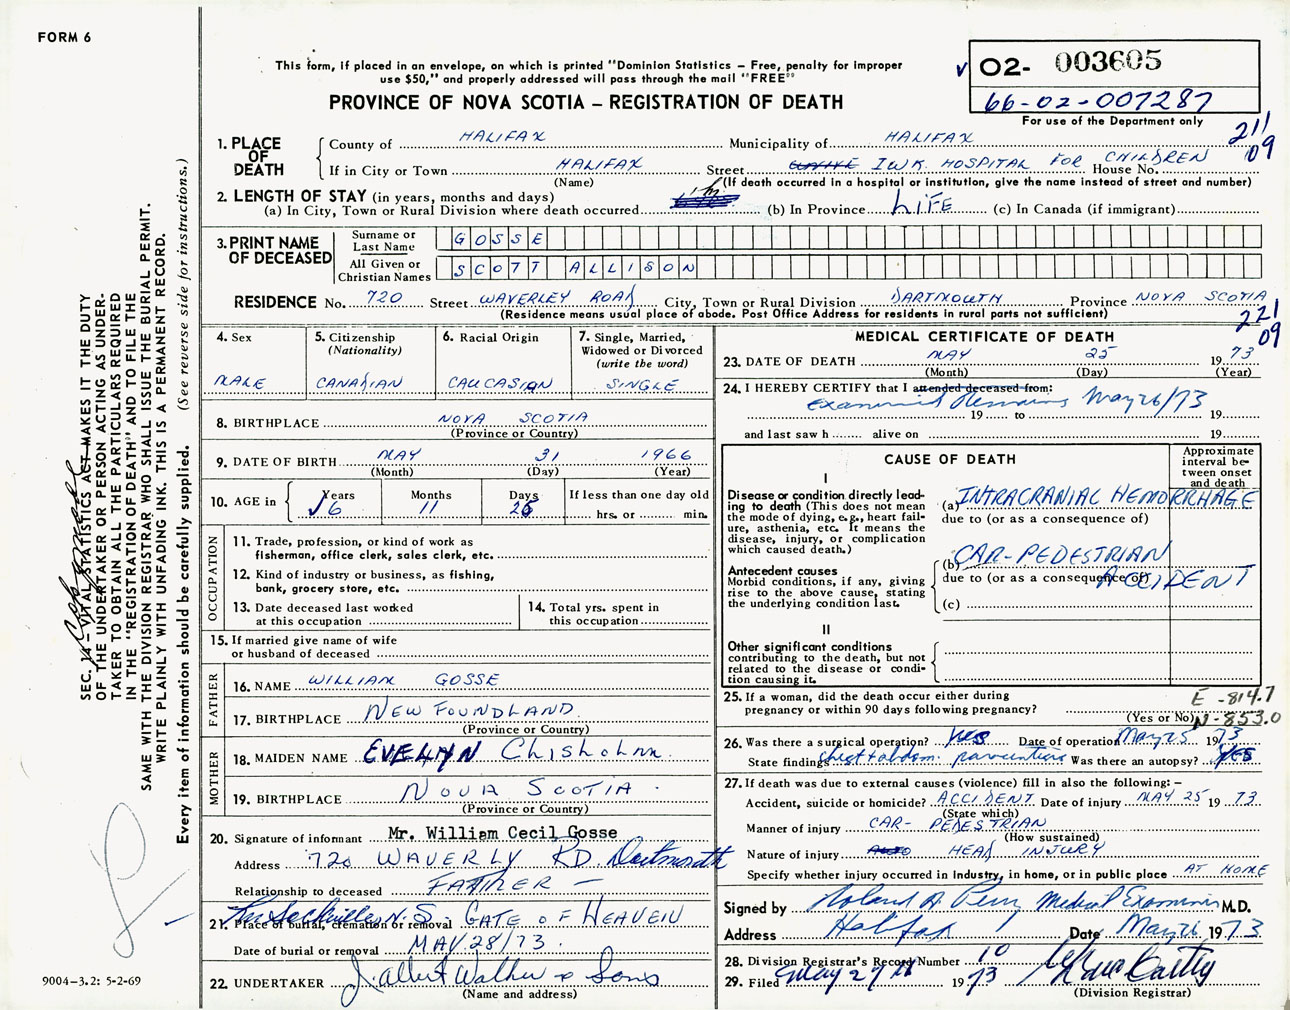 FORM 6
This form, if placed in an envelope, on which is printed "Dominion Statistics – Free, penalty for improper
use $50," and properly addressed will pass through the mail "FREE"
PROVINCE OF NOVA SCOTIA – REGISTRATION OF DEATH
O2- 003605
66-02-007287
For use of the Department only
211
09
1. PLACE OF DEATH
County of HALIFAX Municipality of HALIFAX
If in City or Town HALIFAX Street I.W.K. HOSPITAL FOR CHILDREN House No.
(Name) (If death occurred in a hospital or institution, give the name instead of street and number)
2. LENGTH OF STAY (in years, months and days)
(a) In City, Town or Rural Division where death occurred (b) In Province LIFE (c) In Canada (if immigrant)
3. PRINT NAME OF DECEASED
Surname or Last Name GOSSE
All Given or Christian Names SCOTT ALLISON
RESIDENCE No. 720 Street WAVERLEY ROAD City, Town or Rural Division DARTMOUTH Province NOVA SCOTIA
(Residence means usual place of abode. Post Office Address for residents in rural parts not sufficient)
221
09
4. Sex
MALE
5. Citizenship
(Nationality)
CANADIAN
6. Racial Origin
CAUCASIAN
7. Single, Married,
Widowed or Divorced
(write the word)
SINGLE
8. BIRTHPLACE NOVA SCOTIA
(Province or Country)
9. DATE OF BIRTH MAY 31 1966
(Month) (Day) (Year)
10. AGE in Years Months Days If less than one day old
6 11 25 hrs. or min.
OCCUPATION
11. Trade, profession, or kind of work as
fisherman, office clerk, sales clerk, etc.
12. Kind of industry or business, as fishing,
bank, grocery store, etc.
13. Date deceased last worked
at this occupation
14. Total yrs. spent in
this occupation
15. If married give name of wife
or husband of deceased
FATHER
16. NAME WILLIAM GOSSE
17. BIRTHPLACE NEWFOUNDLAND
(Province or Country)
MOTHER
18. MAIDEN NAME EVELYN Chisholm
19. BIRTHPLACE NOVA SCOTIA
(Province or Country)
20. Signature of informant Mr. William Cecil Gosse
Address 720 WAVERLY RD. Dartmouth
Relationship to deceased FATHER
21. Place of burial, cremation or removal Sackville N.S. GATE OF HEAVEN
Date of burial or removal MAY 28/73
22. UNDERTAKER J. Albert Walker & Sons
(Name and address)
MEDICAL CERTIFICATE OF DEATH
23. DATE OF DEATH MAY 25 1973
(Month) (Day) (Year)
24. I HEREBY CERTIFY that I attended deceased from:
Examined Remains May 26/73
19 to 19
and last saw h alive on 19
CAUSE OF DEATH
Approximate interval between onset and death
I
Disease or condition directly leading to death (This does not mean the mode of dying, e.g., heart failure, asthenia, etc. It means the disease, injury, or complication which caused death.)
(a) INTRACRANIAL HEMORRHAGE
due to (or as a consequence of)
Antecedent causes
Morbid conditions, if any, giving rise to the above cause, stating the underlying condition last.
(b) CAR-PEDESTRIAN ACCIDENT
due to (or as a consequence of)
(c)
II
Other significant conditions
contributing to the death, but not related to the disease or condition causing it.
25. If a woman, did the death occur either during
pregnancy or within 90 days following pregnancy?
(Yes or No)
E - 814.7
N - 853.0
26. Was there a surgical operation? Yes Date of operation May 25 1973
State findings Chest & abdom. Was there an autopsy? YES
27. If death was due to external causes (violence) fill in also the following: –
Accident, suicide or homicide? ACCIDENT Date of injury MAY 25 1973
(State which)
Manner of injury CAR- PEDESTRIAN
(How sustained)
Nature of injury HEAD INJURY
Specify whether injury occurred in Industry, in home, or in public place AT HOME
Signed by Roland A. Perry Medical Examiner M.D.
Address Halifax Date May 26 1973
28. Division Registrar's Record Number 10
29. Filed May 27th 1973
(Division Registrar)
SEC. 14 – VITAL STATISTICS ACT MAKES IT THE DUTY
OF THE UNDERTAKER OR PERSON ACTING AS UNDERTAKER
TO OBTAIN ALL THE PARTICULARS REQUIRED
IN THE "REGISTRATION OF DEATH" AND TO FILE THE
SAME WITH THE DIVISION REGISTRAR WHO SHALL ISSUE THE BURIAL PERMIT.
WRITE PLAINLY WITH UNFADING INK. THIS IS A PERMANENT RECORD.
Every item of information should be carefully supplied. (See reverse side for instructions.)
9004–3.2: 5-2-69